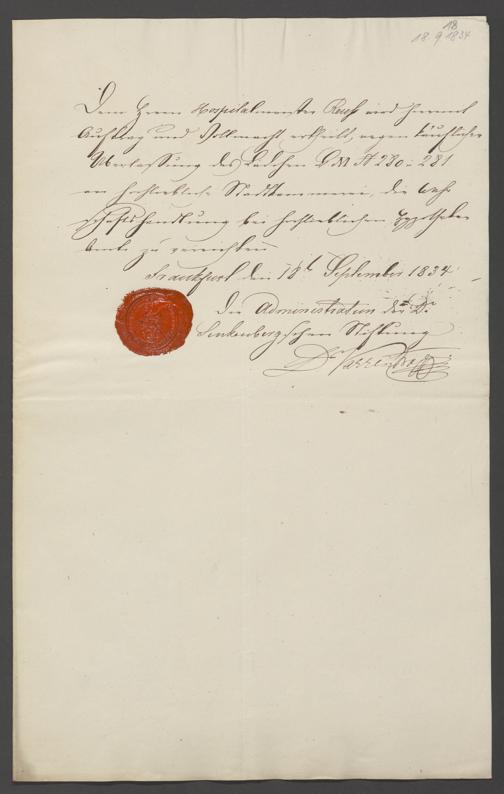 18
18. 9 1834
Dem Herrn Hospitalmeister Reuß wird hiermit
Auftrag und Vollmacht ertheilt, wegen käuflicher
Überlassung des Lädchen No 280 : 281
an hochlöbliche Stadtkämmerei, die Währ
schaftshandlung bei hochlöblichem Hypotheken
Amte zu verrichten
Frankfurt den 18t September 1834
Die Administration der Dr
Senkenbergischen Stiftung
Dr Varrentrapp